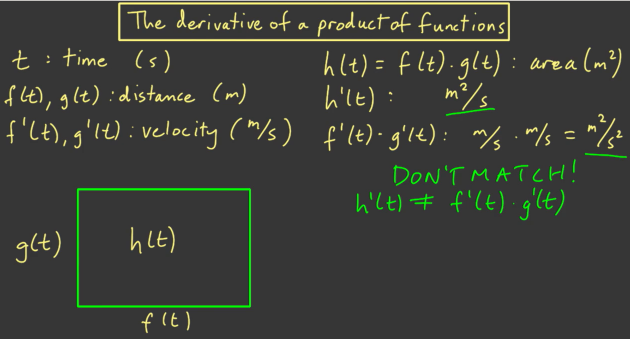 The derivative of a product of functions
t : time (s)
f(t), g(t) : distance (m)
f'(t), g'(t) : velocity (m/s)
h(t) = f(t) · g(t) : area (m²)
h'(t) : m²/s
f'(t) · g'(t) : m/s · m/s = m²/s²
DON'T MATCH!
h'(t) ≠ f'(t) · g'(t)
g(t)
h(t)
f(t)